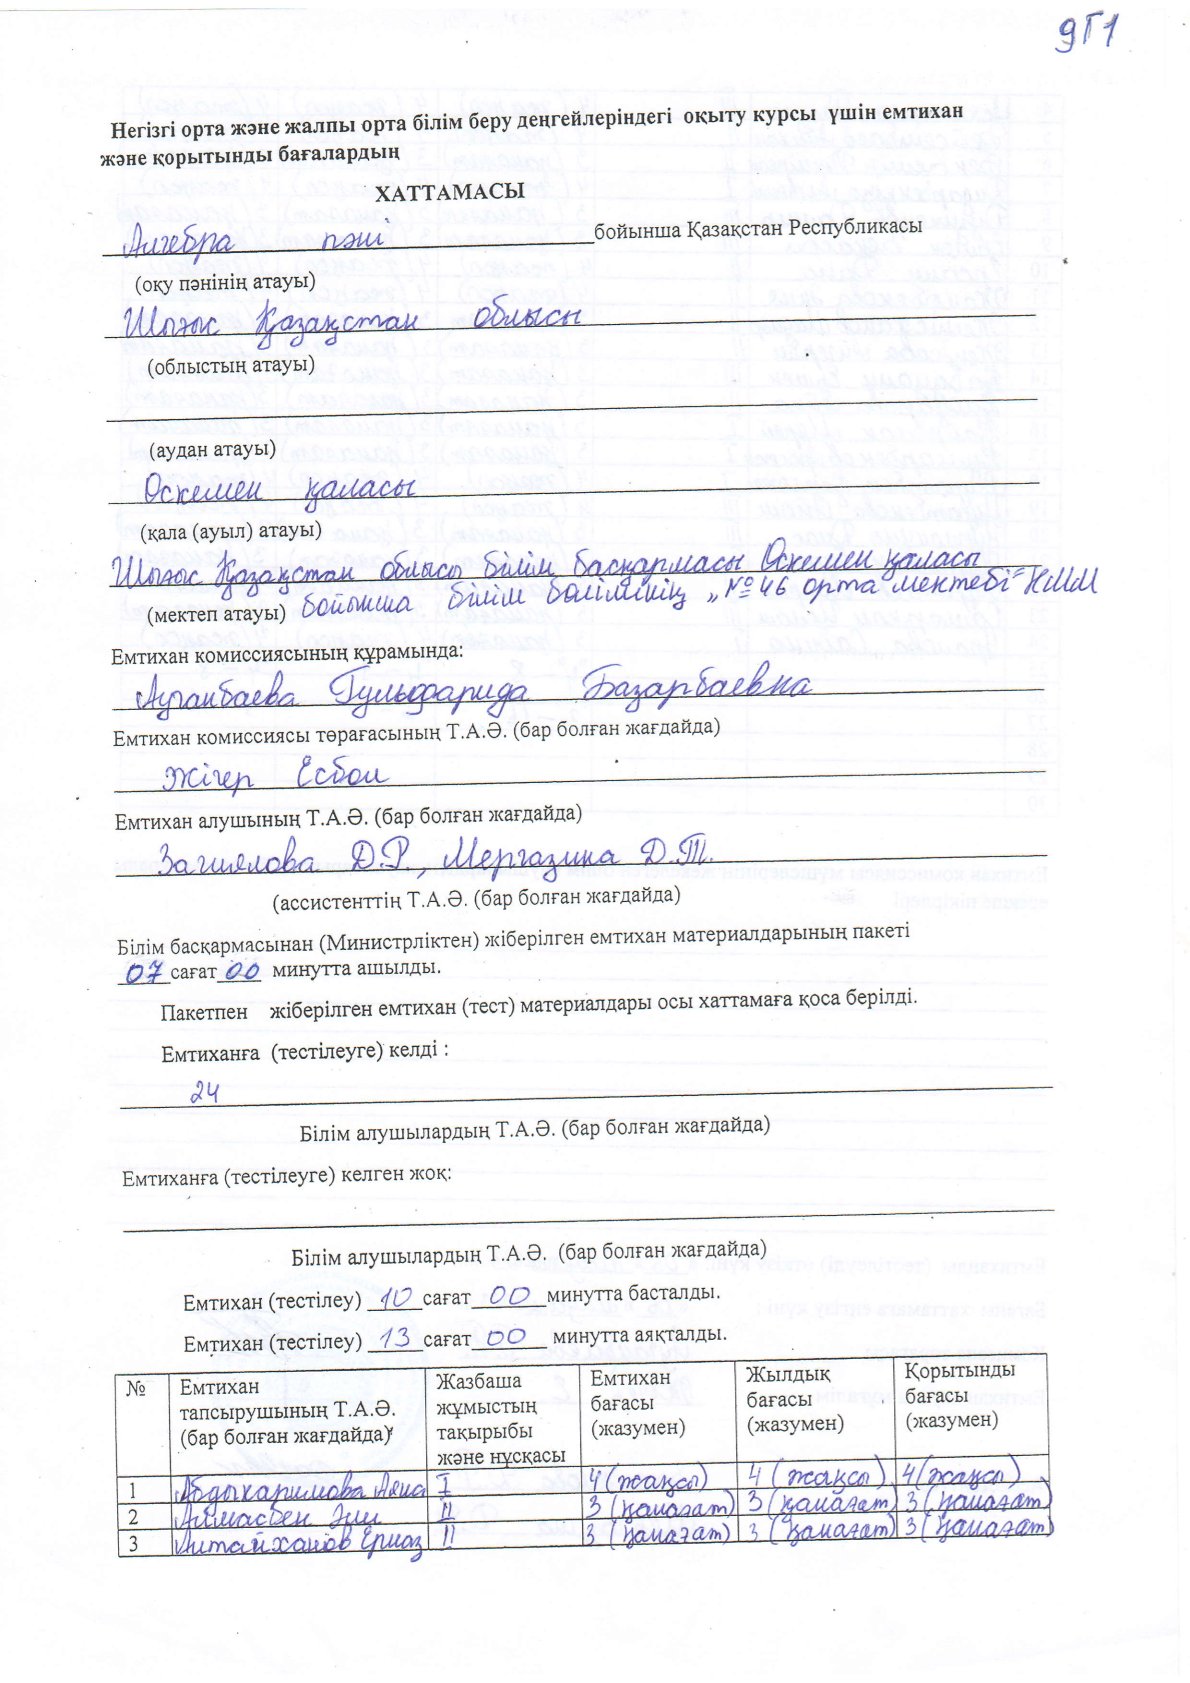 9Г1
Негізгі орта және жалпы орта білім беру деңгейлеріндегі оқыту курсы үшін емтихан
және қорытынды бағалардың
ХАТТАМАСЫ
Алгебра пәні бойынша Қазақстан Республикасы
(оқу пәнінің атауы)
Шығыс Қазақстан облысы
(облыстың атауы)
(аудан атауы)
Өскемен қаласы
(қала (ауыл) атауы)
Шығыс Қазақстан облысы білім басқармасы Өскемен қаласы
(мектеп атауы) бойынша білім бөлімінің „№46 орта мектебі" КММ
Емтихан комиссиясының құрамында:
Ауганбаева Гульфарида Базарбаевна
Емтихан комиссиясы төрағасының Т.А.Ә. (бар болған жағдайда)
Жігер Есбол
Емтихан алушының Т.А.Ә. (бар болған жағдайда)
Загиялова Д.Р., Мергазина Д.Т.
(ассистенттің Т.А.Ә. (бар болған жағдайда)
Білім басқармасынан (Министрліктен) жіберілген емтихан материалдарының пакеті
07 сағат 00 минутта ашылды.
Пакетпен жіберілген емтихан (тест) материалдары осы хаттамаға қоса берілді.
Емтиханға (тестілеуге) келді :
24
Білім алушылардың Т.А.Ә. (бар болған жағдайда)
Емтиханға (тестілеуге) келген жоқ:
Білім алушылардың Т.А.Ә. (бар болған жағдайда)
Емтихан (тестілеу) 10 сағат 00 минутта басталды.
Емтихан (тестілеу) 13 сағат 00 минутта аяқталды.
№ Емтихан тапсырушының Т.А.Ә. (бар болған жағдайда) Жазбаша жұмыстың тақырыбы және нұсқасы Емтихан бағасы (жазумен) Жылдық бағасы (жазумен) Қорытынды бағасы (жазумен)
1 Абдыкаримова Аяна I 4 (жақсы) 4 (жақсы) 4 (жақсы)
2 Алмасбек II 3 (қанағат) 3 (қанағат) 3 (қанағат)
3 Алтайханов Ерназ II 3 (қанағат) 3 (қанағат) 3 (қанағат)